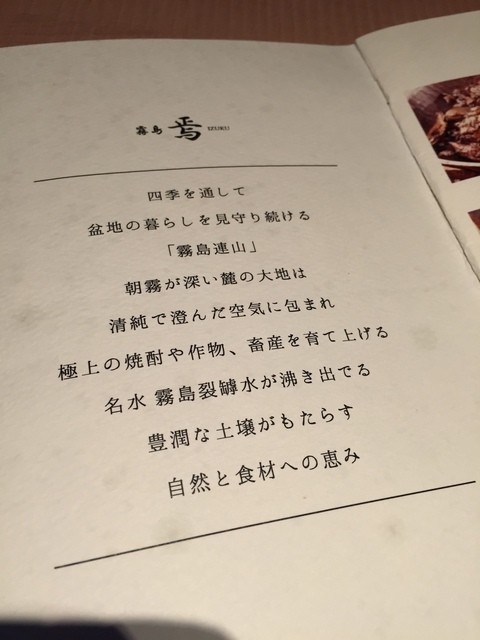 霧島 焉 IZUKU
四季を通して
盆地の暮らしを見守り続ける
「霧島連山」
朝霧が深い麓の大地は
清純で澄んだ空気に包まれ
極上の焼酎や作物、畜産を育て上げる
名水 霧島裂罅水が沸き出でる
豊潤な土壌がもたらす
自然と食材への恵み